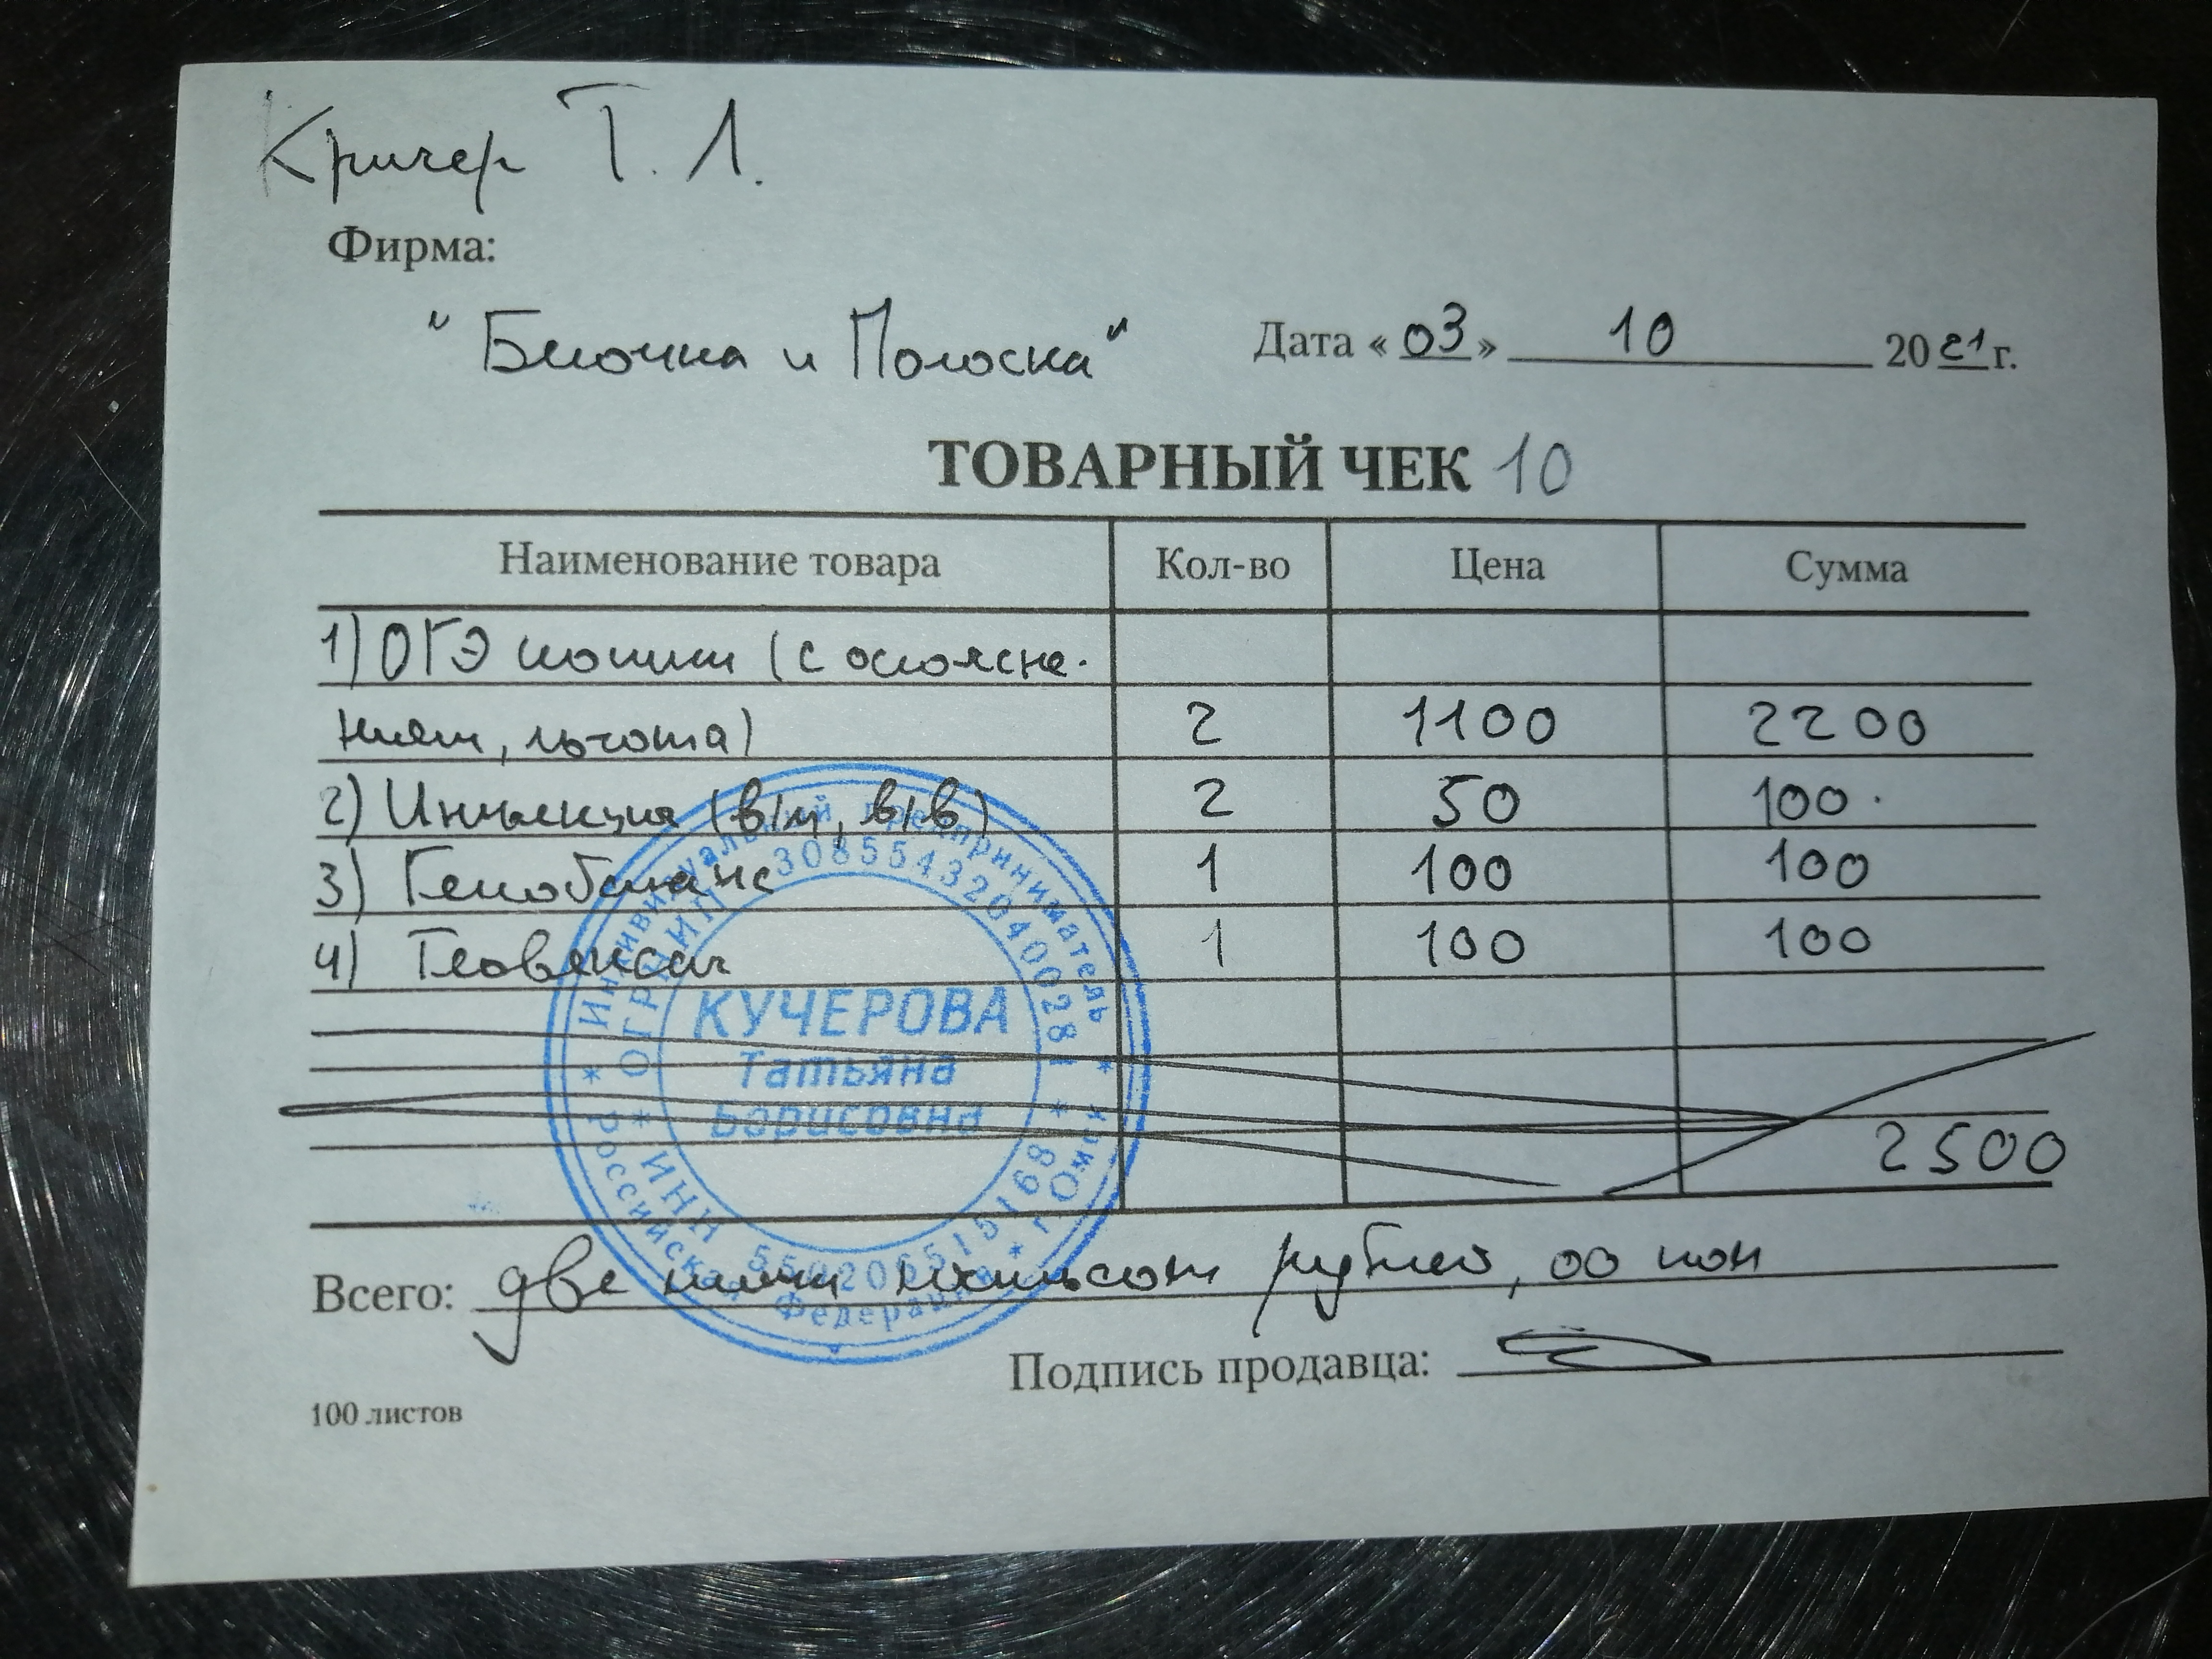 Кричер Т. Л.
Фирма:
"Белочка и Полоска"
Дата «03» 10 2021 г.
ТОВАРНЫЙ ЧЕК 10
Наименование товара Кол-во Цена Сумма
1) ОГЭ кошки (с осложне-
ниям, льгота) 2 1100 2200
2) Инъекция (в/м, в/в) 2 50 100.
3) Гемобаланс 1 100 100
4) 1 100 100
2500
Всего: две тысячи пятьсот рублей, 00 коп
Подпись продавца:
100 листов
Индивидуальный предприниматель
ОГРНИП 308554320400281
КУЧЕРОВА
Татьяна
Борисовна
ИНН
Российская Федерация * г. Омск